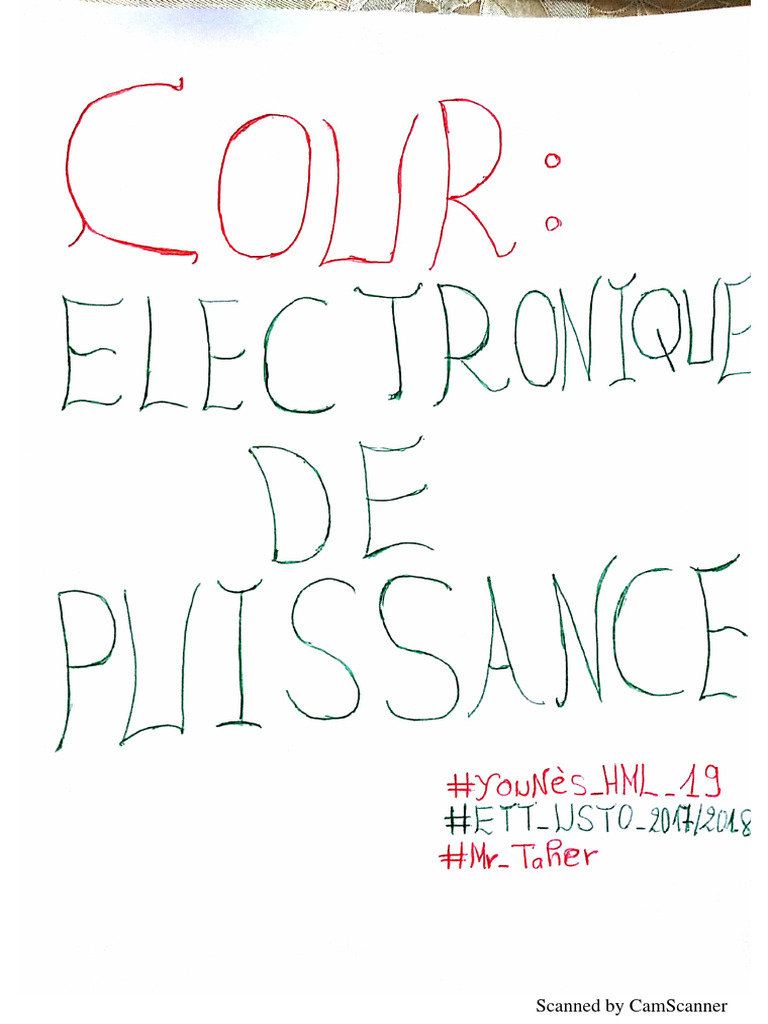 COUR:
ELECTRONIQUE
DE
PUISSANCE
#YouNès_HML_19
#ETT_USTO_2017/2018
#Mr_Taher
Scanned by CamScanner